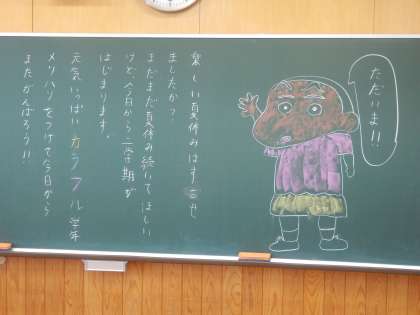 ただいま!!
楽しい夏休みはすごせ
ましたか?
まだまだ夏休み続いてほしい
けど、今日から二学期が
はじまります。
元気いっぱいカラフル学年
メリハリをつけて今日から
またがんばろう!!